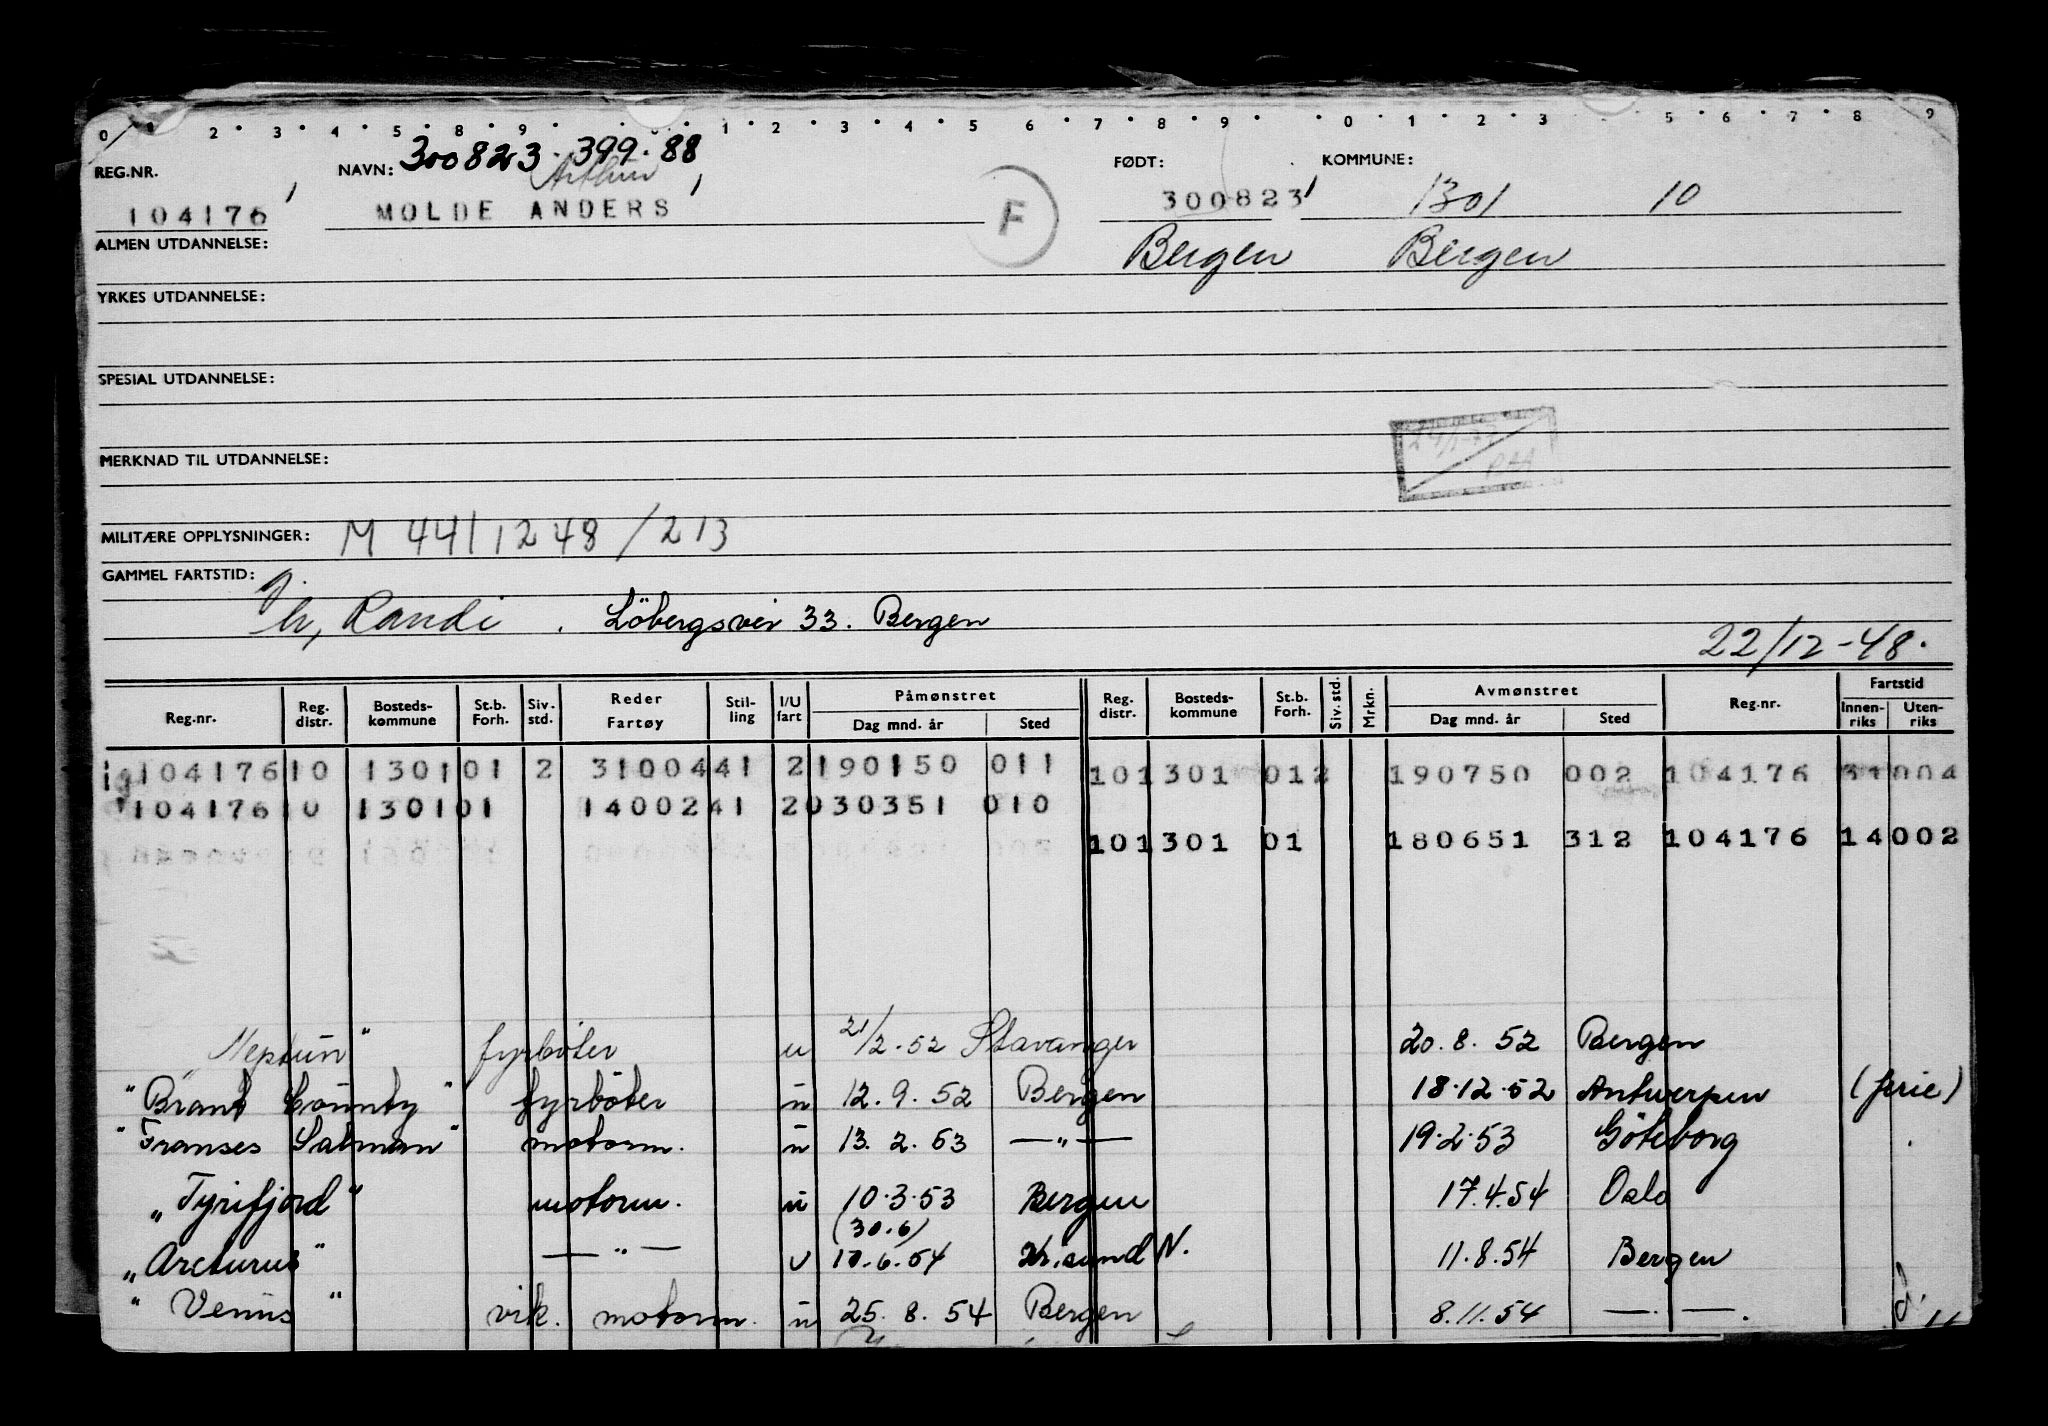 0 2 • 3 • 4 • 5 • 8 • 9 • • 1 • 2 • 3 • 4 • 5 • 6 • 7 • 8 • 9 • • 0 • 1 • 2 • 3 5 • 6 • 7 • 8 9
REG.NR. NAVN: 300823.399.88 FØDT: KOMMUNE:
Arthur
104176 MOLDE ANDERS F 300823 1301 10
ALMEN UTDANNELSE: Bergen Bergen
YRKES UTDANNELSE:
SPESIAL UTDANNELSE:
MERKNAD TIL UTDANNELSE:
MILITÆRE OPPLYSNINGER: M 4411248/213
GAMMEL FARTSTID:
h, Randi . Löbergsvei 33. Bergen
22/12-48.
Reg.nr. Reg. distr. Bosteds-kommune St.b. Forh. Siv. std. Reder Fartøy Stil-ling I/U fart Påmønstret Reg. distr. Bosteds-kommune St.b. Forh. Siv. std. Mrkn. Avmønstret Reg.nr. Fartstid
Dag mnd. år Sted Dag mnd. år Sted Innen-riks Uten-riks
104176 10 1301 01 2 3100441 2 190150 011 10 1301 012 190750 002 104176 31004
104176 10 1301 01 1400241 2 030351 010
10 1301 01 180651 312 104176 14002
Neptun" fyrböter u 21/2.52 Stavanger 20.8.52 Bergen
"Brant County" fyrböter u 12.9.52 Bergen 18.12.52 Antwerpen (ferie)
"Franses Salman" motorm. u 13.2.53 —"— 19.2.53 Göteborg
"Tyrifjord" motorm. u 10.3.53 Bergen 17.4.54 Oslo
(30.6)
"Arcturus" —"— u 10.6.54 Kr.sund N. 11.8.54 Bergen
"Venus" vik. motorm. u 25.8.54 Bergen 8.11.54 — —.